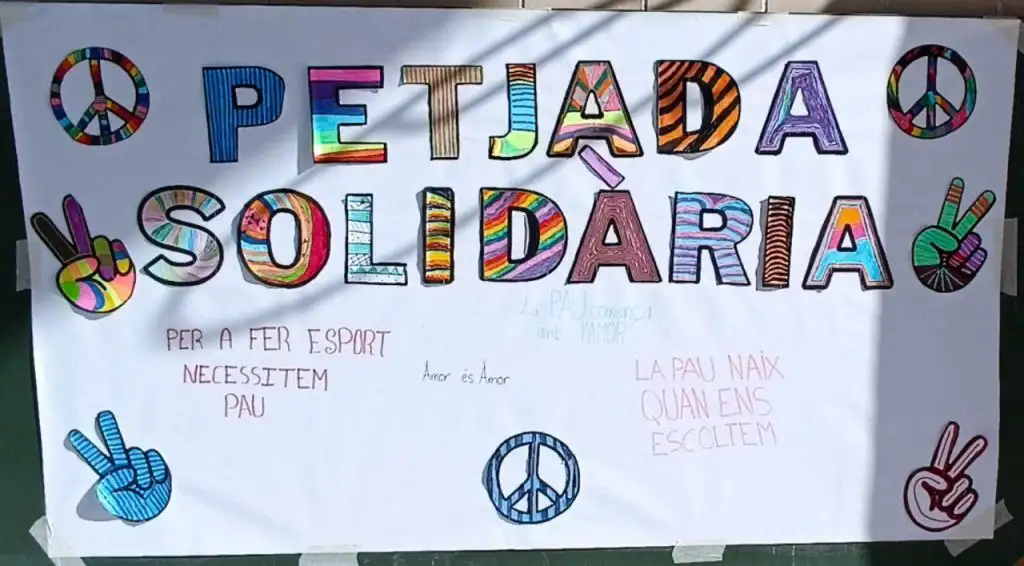 PETJADA
SOLIDÀRIA
La PAU comença
amb l'AMOR
PER A FER ESPORT
NECESSITEM
PAU
Amor és Amor
LA PAU NAIX
QUAN ENS
ESCOLTEM